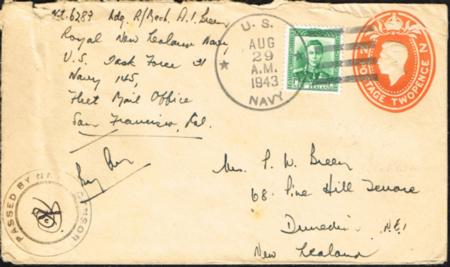 NZ6289 Ldg. R/Mech A.I. Breen
Royal New Zealand Navy
U.S. Task Force 31
Navy 145,
Fleet Mail Office
San Francisco, Cal.
U. S.
AUG
29
A.M.
1943
NAVY
POSTAGE TWOPENCE N Z
PASSED BY NAVAL CENSOR
Mrs. P. W. Breen
68 Pine Hill Terrace
Dunedin N.E.1
New Zealand